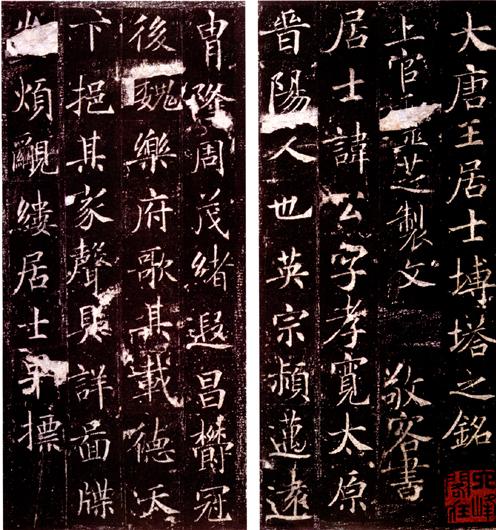 大唐王居士塼塔之銘
上官靈芝製文 敬客書
居士諱公字孝寬太原
晉陽人也英宗穎邁遠
胄隆周茂緒遐昌鬱冠
後魏樂府歌其載德天
下挹其家聲具詳圖牒
煩覼縷居士早標